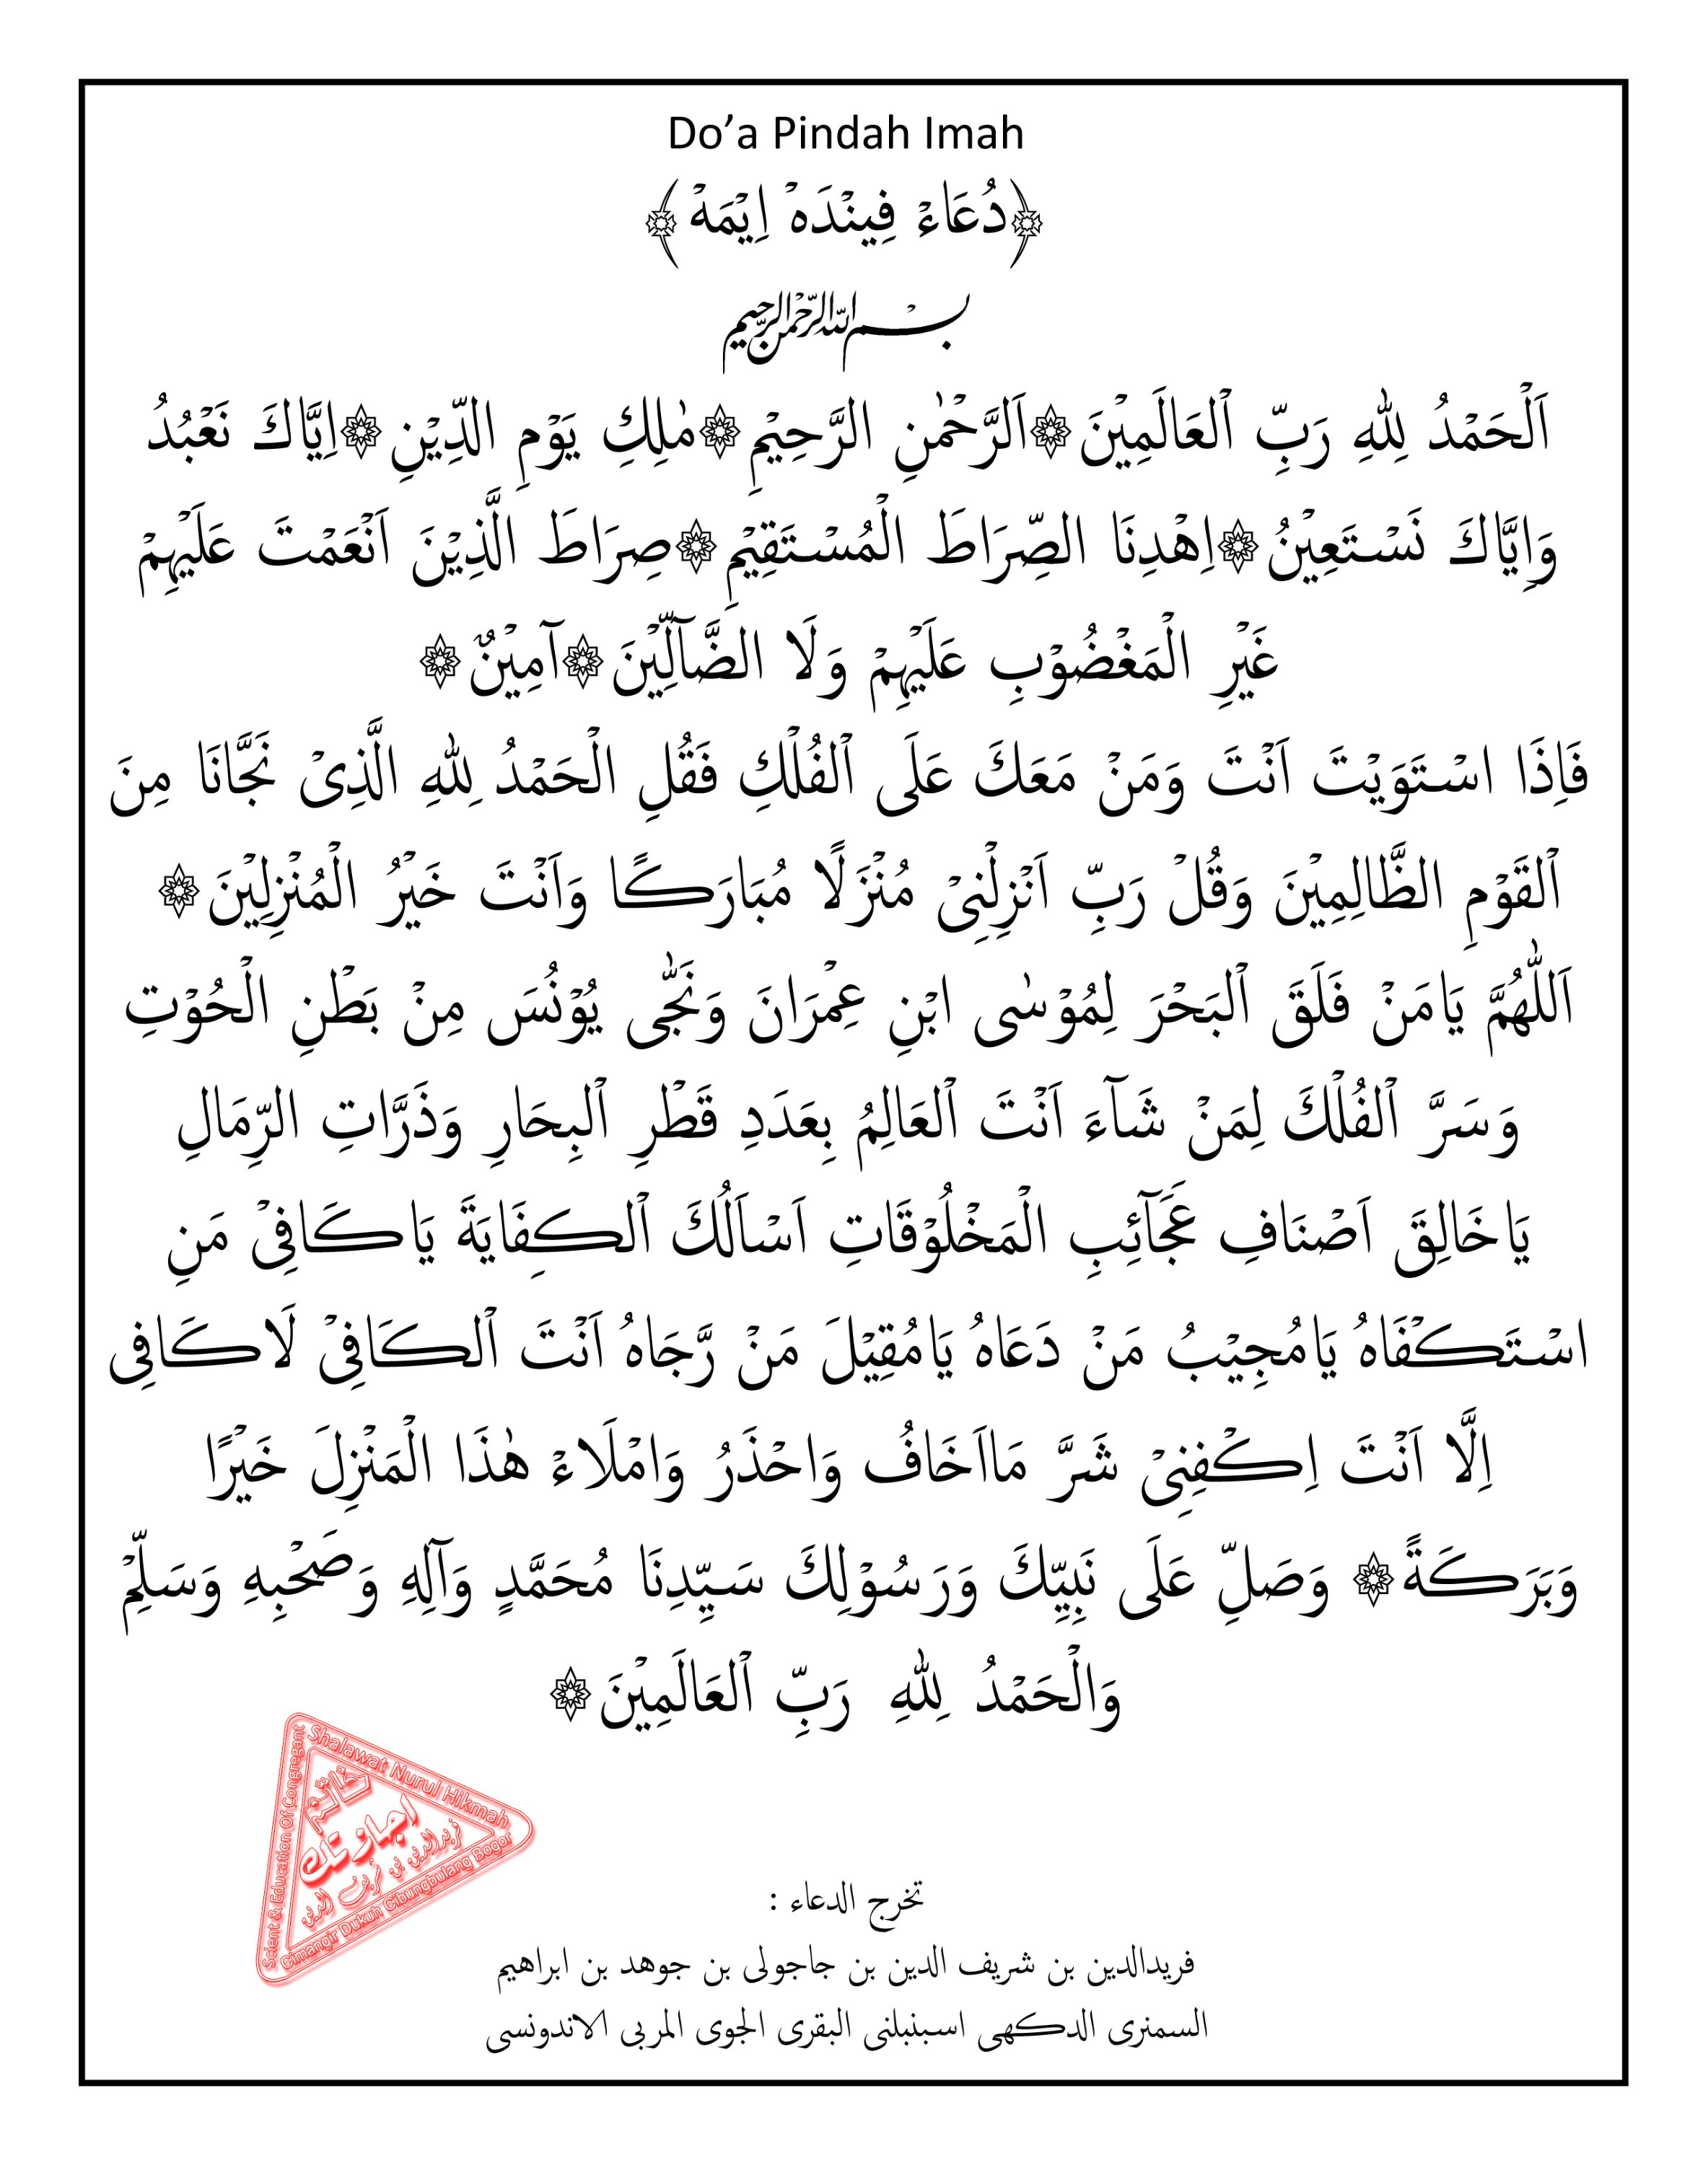 Do’a Pindah Imah
﴿دُعَاءْ فِينْدَهْ اِيْمَهْ﴾
بِسْمِ اللهِ الرَّحْمٰنِ الرَّحِيْمِ
اَلْحَمْدُ لِلّٰهِ رَبِّ ٱلْعَالَمِيْنَ۞اَلرَّحْمٰنِ الرَّحِيْمِ۞مٰلِكِ يَوْمِ الدِّيْنِ۞اِيَّاكَ نَعْبُدُ
وَاِيَّاكَ نَسْتَعِيْنُ۞اِهْدِنَا الصِّرَاطَ الْمُسْتَقِيْمِ۞صِرَاطَ الَّذِيْنَ اَنْعَمْتَ عَلَيْهِمْ
غَيْرِ الْمَغْضُوْبِ عَلَيْهِمْ وَلَا الضَّآلِّيْنَ۞آمِيْنٌ۞
فَاِذَا اسْتَوَيْتَ اَنْتَ وَمَنْ مَعَكَ عَلَى ٱلْفُلْكِ فَقُلِ الْحَمْدُ لِلّٰهِ الَّذِىْ نَجَّانَا مِنَ
ٱلْقَوْمِ الظَّالِمِيْنَ وَقُلْ رَبِّ اَنْزِلْنِىْ مُنْزَلًا مُبَارَكًا وَاَنْتَ خَيْرُ الْمُنْزِلِيْنَ۞
اَللّٰهُمَّ يَامَنْ فَلَقَ ٱلْبَحْرَ لِمُوْسٰى ابْنِ عِمْرَانَ وَنَجّٰى يُوْنُسَ مِنْ بَطْنِ الْحُوْتِ
وَسَرَّ ٱلْفُلْكَ لِمَنْ شَآءَ اَنْتَ ٱلْعَالِمُ بِعَدَدِ قَطْرِ ٱلْبِحَارِ وَذَرَّاتِ الرِّمَالِ
يَاخَالِقَ اَصْنَافِ عَجَآئِبِ الْمَخْلُوْقَاتِ اَسْاَلُكَ ٱلْكِفَايَةَ يَاكَافِىْ مَنِ
اسْتَكْفَاهُ يَامُجِيْبُ مَنْ دَعَاهُ يَامُقِيْلَ مَنْ رَّجَاهُ اَنْتَ ٱلْكَافِىْ لَاكَافِى
اِلَّا اَنْتَ اِكْفِنِىْ شَرَّ مَااَخَافُ وَاحْذَرُ وَامْلَاءْ هٰذَا الْمَنْزِلَ خَيْرًا
وَبَرَكَةً۞ وَصَلِّ عَلَى نَبِيِّكَ وَرَسُوْلِكَ سَيِّدِنَا مُحَمَّدٍ وَآلِهِ وَصَحْبِهِ وَسَلِّمْ
وَالْحَمْدُ لِلّٰهِ رَبِّ ٱلْعَالَمِيْنَ۞
Shalawat Nurul Hikmah
Scient & Education Of Congregant
Cimangir Dukuh Cibungbulang Bogor
اجازتك
فريدالدين بن شريف الدين
تخرج الدعاء :
فريدالدين بن شريف الدين بن جاجولى بن جوهد بن ابراهيم
السمنرى الدكهى اسبنبلنى البقرى الجوى المربى الاندونسى